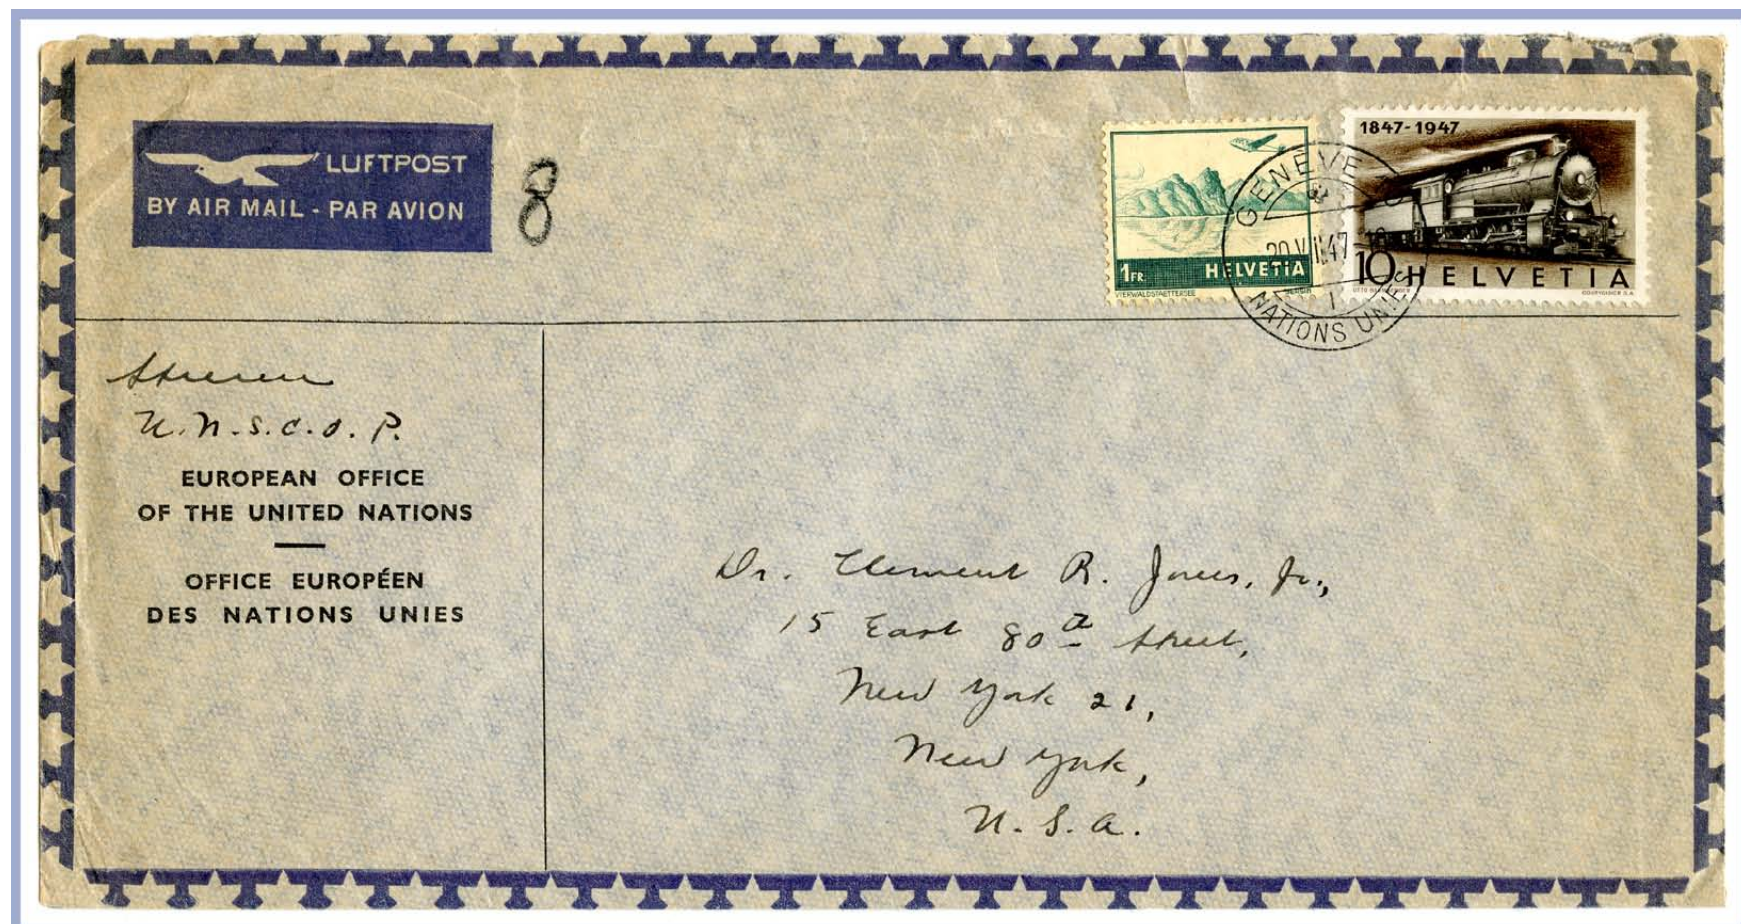 LUFTPOST
BY AIR MAIL - PAR AVION
8
1847-1947
1 FR. HELVETIA
VIERWALDSTAETTERSEE
10 c HELVETIA
COURVOISIER S.A.
GENÈVE
NATIONS UNIES
U.N.S.C.O.P.
EUROPEAN OFFICE
OF THE UNITED NATIONS
OFFICE EUROPÉEN
DES NATIONS UNIES
Dr. Clement R. Jones, Jr.,
15 East 80th Street,
New York 21,
New York,
U.S.A.